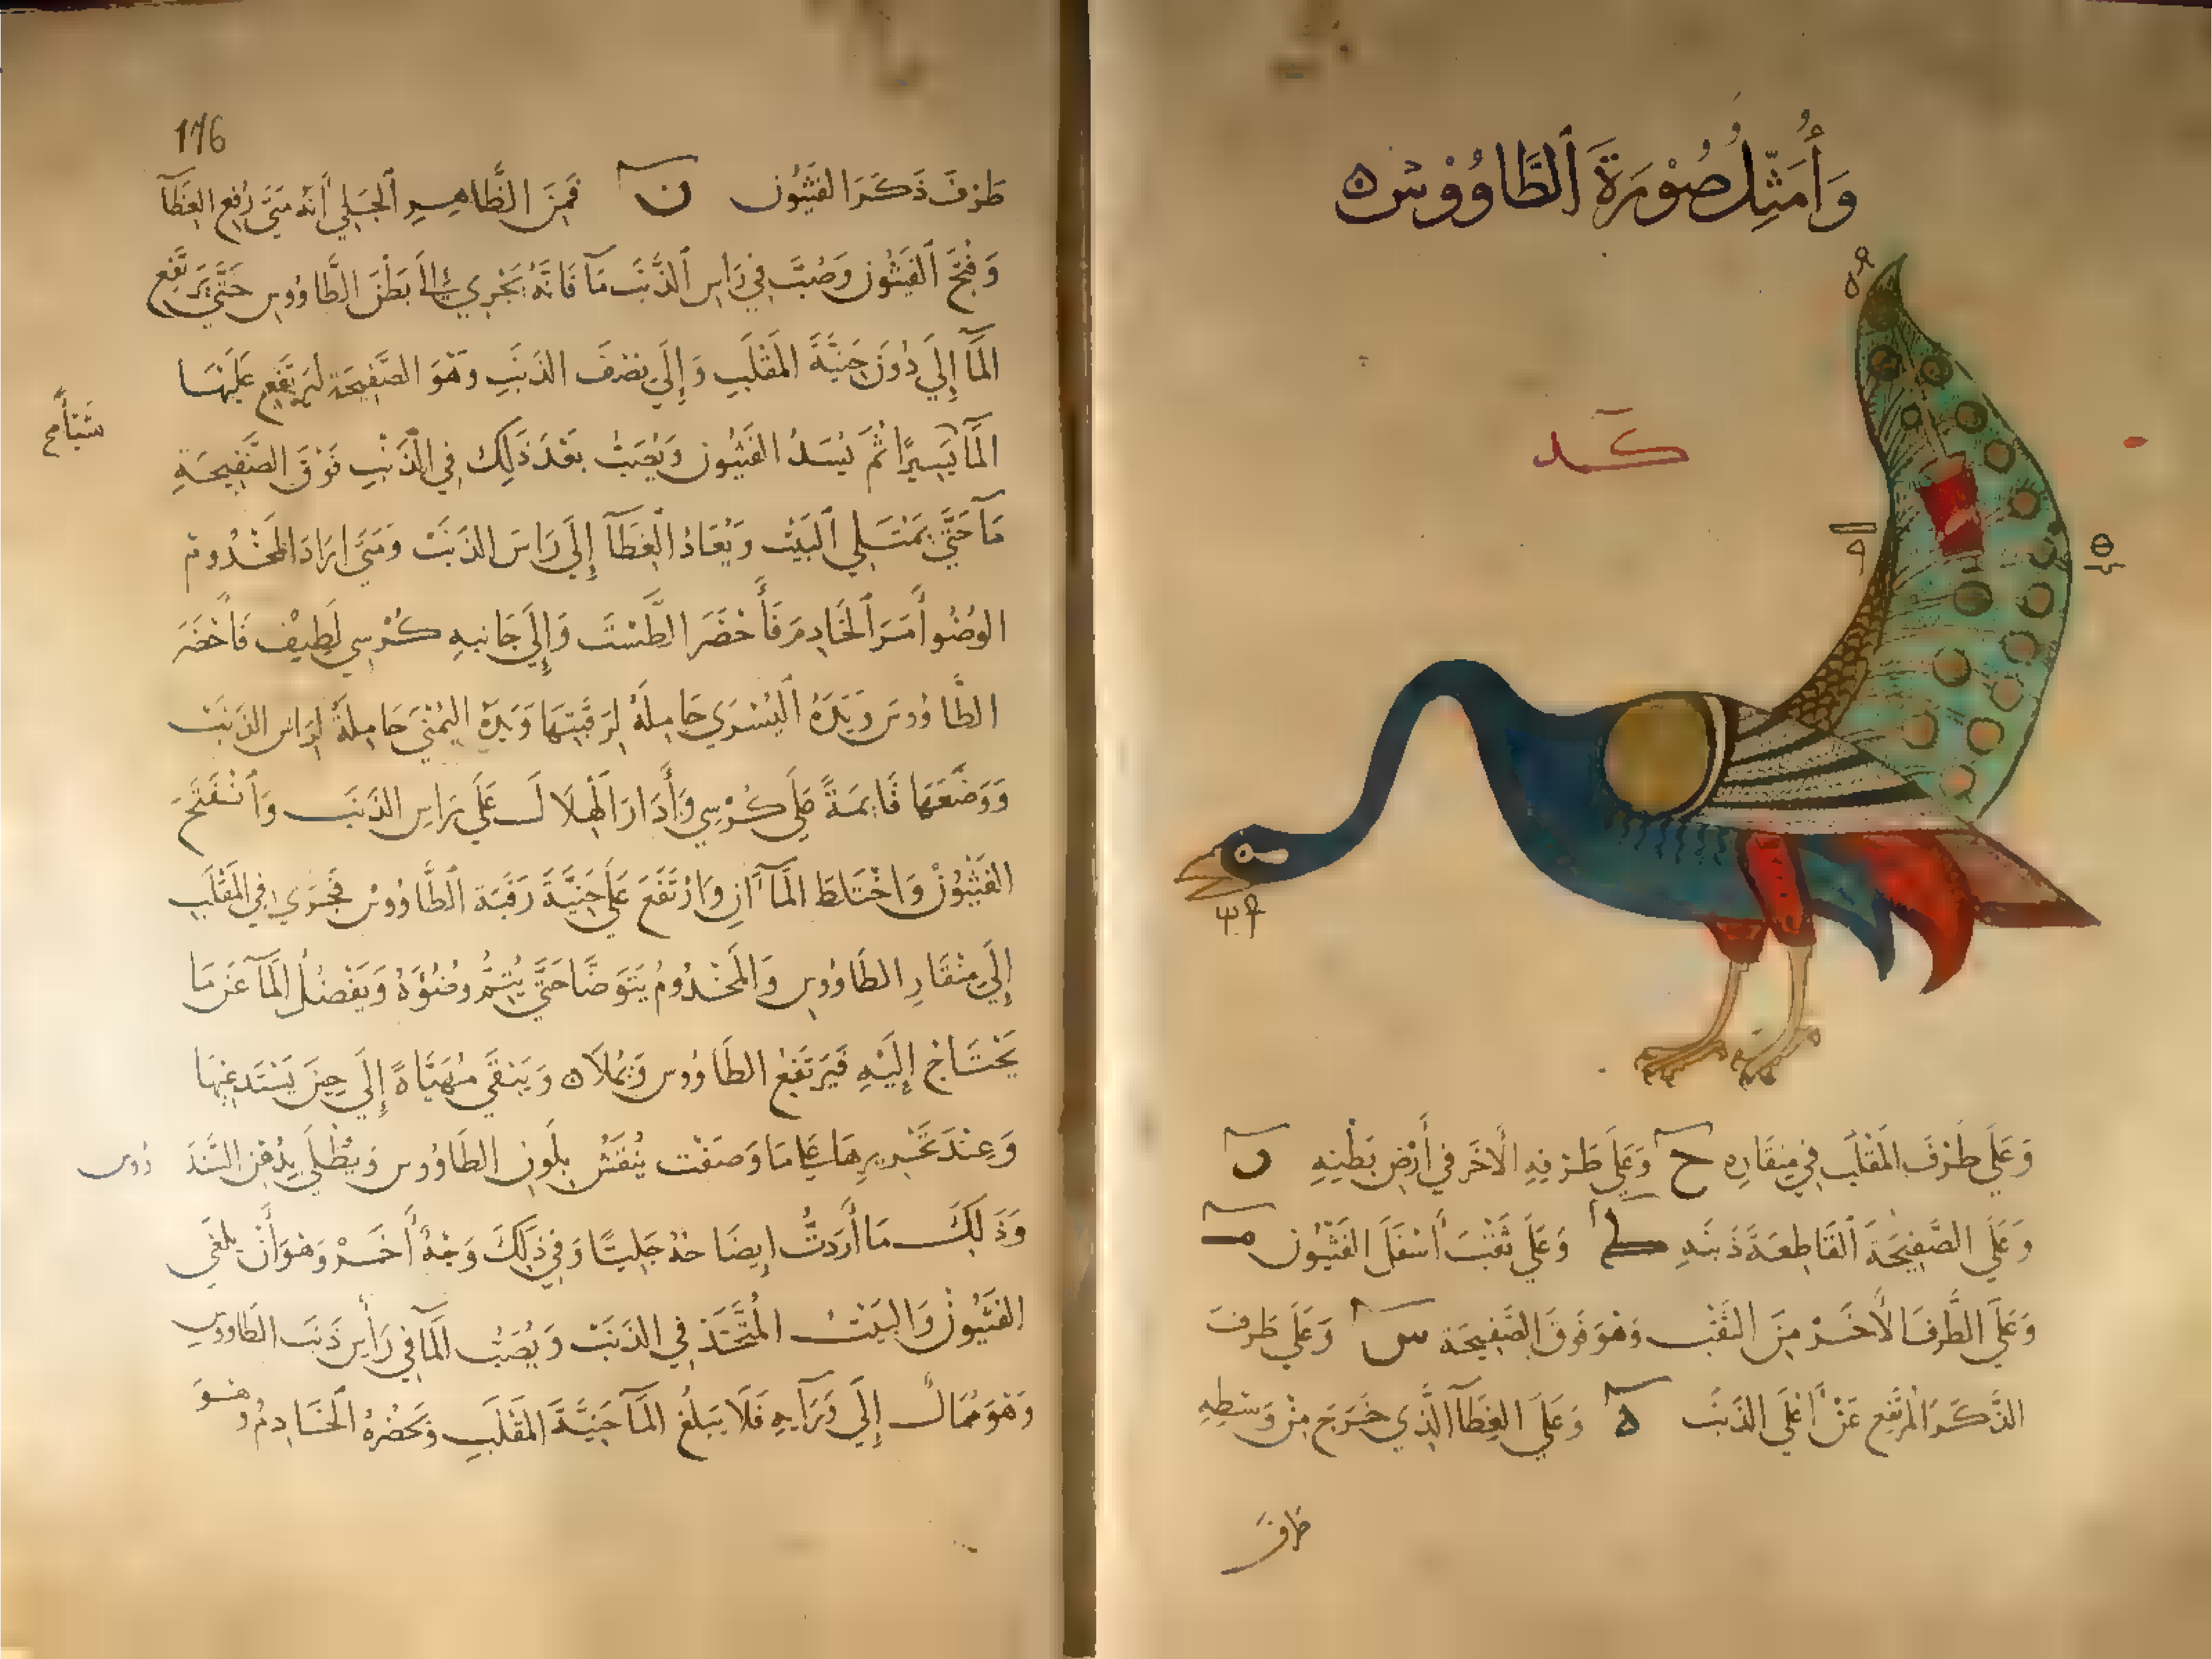 وَأُمَثِّلُ صُوْرَةَ ٱلطَّاوُوْسْ ه
كد
وَعَلَى طَرْفَ المَقْلَب فِي مِنقَارِه ح وَعَلَى طَرَفِهِ الْآخَر فِي أَرْضِ بَطْنِهِ ں
وَعَلَى الصَّفِيحَةَ القَاطِعَةَ ذَنَبِه ط وَعَلَى ثَقْبَ أَسْفَلَ الفَثْيُون م
وَعَلَى الطَّرفَ الْآخَرْ مِنَ الثَّقْب وَهُوَ فَوْقَ الصَّفِيحَة س وَعَلَى طَرفَ
الذَّكَرَ المُرْتَفِع عَنْ أَعْلَى الذَنَبَ ه وَعَلَى الغِطَآ الَّذِي خَرَجَ مِنْ وَسْطِهِ
طرف
176
طَرْفَ ذَكَرَ الفَثْيُون ن فَمِنَ الظَّاهِرِ الجَلِي أَنَّهُ مَتَى رُفِعَ الغِطَآ
وَفُتِحَ الفَثْيُون وَصُبَّ فِي رَاسِ الذَّنَبَ مَآ فَانَّهُ يَجْرِي إِلَى بَطْنِ الطَّاوُوس حَتَّى يَرْتَفِع
المَآ إِلَى دُونَ حَنِيَّةَ المَقْلَبِ وَإِلَى نِصْفَ الذَنَبِ وَهْوَ الصَّفِيحَة لِيَرْتَفِع عَلَيْهَا
المَآ يَسِيرًا ثُمَّ يُسَدُّ الفَثْيُون وَيُصَبُّ بَعْدَ ذَلِكَ فِي الذَنَبِ فَوْقَ الصَّفِيحَةِ
مَآ حَتَّى يَمْتَلِي البَيْتُ وَيُعَادُ الغِطَآ إِلَى رَاسَ الذَنَبَ وَمَتَى ارَادَ المَخْدُوم
الوُضُوأ مَرَ الخَادِمَ فَأَحْضَرَ الطَّسْتَ وَإِلَى جَانِبِهِ كُرْسِي لَطِيفْ فَاحْضَرَ
الطَّاوُوسَ وَيَدَهُ اليُسْرَي حَامِلَةُ لِرَقَبَتِهَا وَيَدَهُ اليُمْنَي حَامِلَةُ لِرَاسِ الذَنَبَ
وَوَضَعَهَا قَايِمَةً عَلَى كُرْسِي وَأَدَارَ الهِلَالَ عَلَى رَاسِ الذَنَبَ وَانْفَتَحَ
الفَثْيُونْ وَاخْتَلطَ المَآ اَنِ وَارْتَفَعَ عَلَى حَنِيَّةَ رَقَبَة الطَّاوُوس فَجَرَي فِي المَقْلَبِ
إِلَى مِنْقَارِ الطَاوُوسِ وَالمَخْدُومُ يَتَوَضَّا حَتَّى يُتِمُّ وضُوُؤَهُ وَيَفْضُلُ المَآ عَنْ مَا
يَحْتَاجُ إِلَيْهِ فَيَرْتَفِعُ الطَاوُوس وَيُمْلَا ه وَيَبْقَى مُهَيَّاةً إِلَى حِينَ يَسْتَدعِيْهَا
وَعِنْدَ تَحْرِيرِهَا عَلى مَا وَصَفْت يُنْقَشُ بِلَونِ الطَاوُوس وَيُطْلَى بِدُهْنِ السَّنْدَ روس
وَذَلِكَ مَا أَرَدتُّ ايضَاحَهُ جَلِيًّا وَفِي ذَلِكَ وَجْهٌ أَخَرْ وَهْوَ أَنْ يُلْغَي
الفَثْيُونْ وَالبَيْتُ المُتَّخَذ فِي الذَنَبَ وَيُصَبُّ المَآ فِي رَأَسِ ذَنَبَ الطَاوُوس
وَهْوَ مُمَالْ إِلَى وَرَآيِهِ فَلَا يَبْلُغ المَآ حَنِيَّةَ المَقْلَبِ وَيَحْضُرُهُ الخَادِمُ وهْوَ